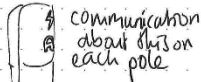 communication
about this on
each pole